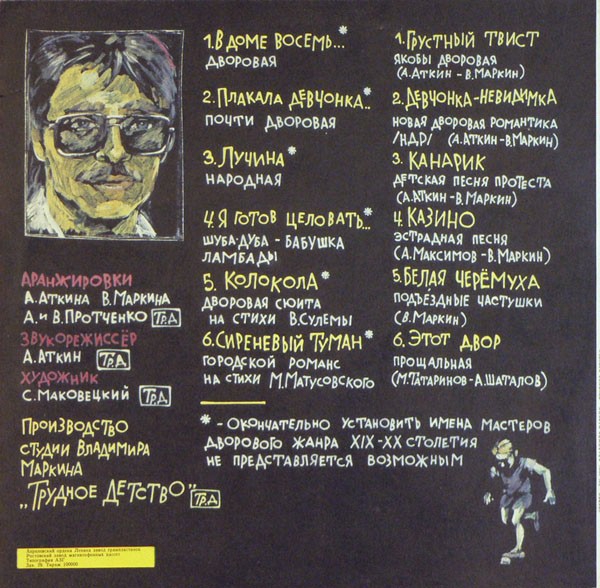 1. В доме восемь...*
дворовая
2. Плакала девчонка..*
почти дворовая
3. Лучина*
народная
4. Я готов целовать..*
шуба-дуба - бабушка
ламбады
5. Колокола*
дворовая сюита
на стихи В.Сулемы
6. Сиреневый туман*
городской романс
на стихи М.Матусовского
1. Грустный твист
якобы дворовая
(А.Аткин - В.Маркин)
2. Девчонка-невидимка
новая дворовая романтика
/НДР/ (А.Аткин - В.Маркин)
3. Канарик
детская песня протеста
(А.Аткин - В.Маркин)
4. Казино
эстрадная песня
(А.Максимов - В.Маркин)
5. Белая черёмуха
подъездные частушки
(В.Маркин)
6. Этот двор
прощальная
(М.Татаринов - А.Шаталов)
Аранжировки
А.Аткина В.Маркина
А. и В.Протченко Тр.Д
Звукорежиссёр
А.Аткин Тр.Д
Художник
С.Маковецкий Тр.Д
Производство
студии Владимира
Маркина
„Трудное Детство" Тр.Д
* - окончательно установить имена мастеров
дворового жанра XIX-XX столетия
не представляется возможным
Апрелевский ордена Ленина завод грампластинок
Ростовский завод магнитофонных кассет
Типография АЗГ
Тираж 100000